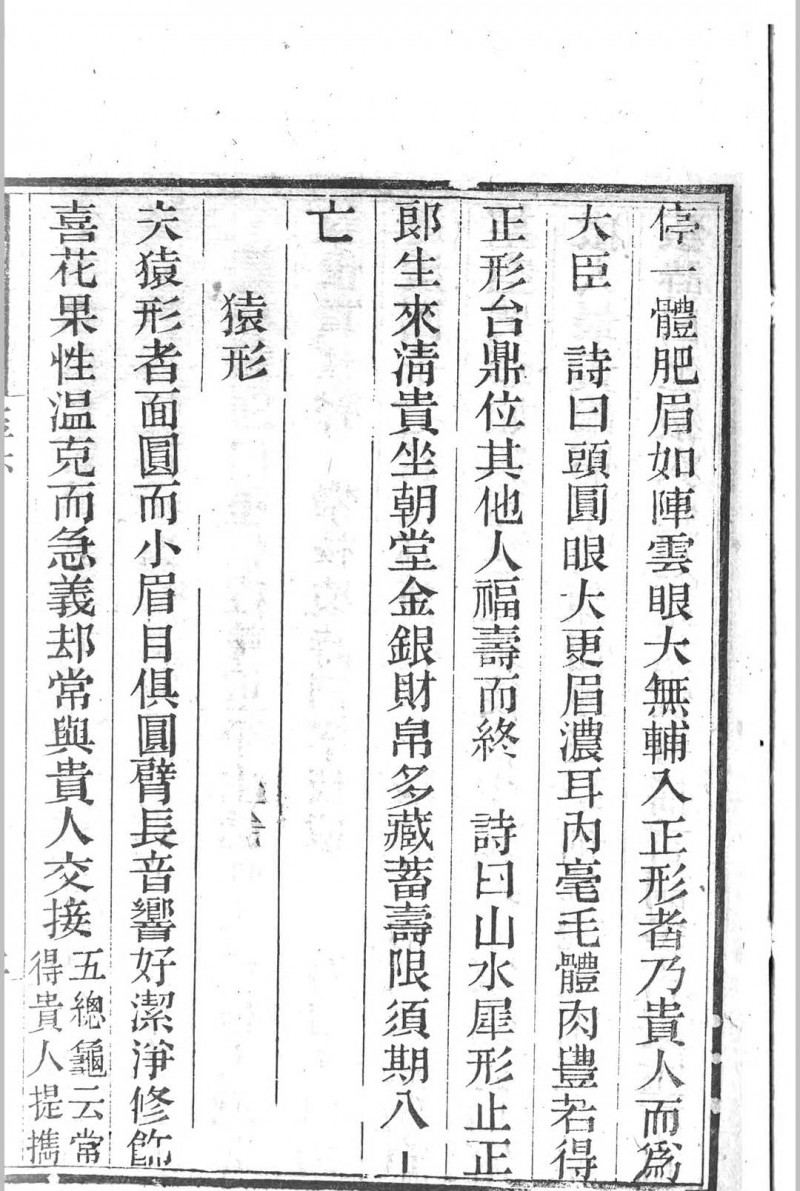 停一體肥眉如陣雲眼大無輔入正形者乃貴人而爲
大臣　詩曰頭圓眼大更眉濃耳內毫毛體肉豐若得
正形台鼎位其他人福壽而終　詩曰山水犀形止正
郎生來淸貴坐朝堂金銀財帛多藏蓄壽限須期八十
亡
猿形
夫猿形者面圓而小眉目俱圓臂長音響好潔淨修飾
喜花果性温克而急義却常與貴人交接
五總龜云常
得貴人提携